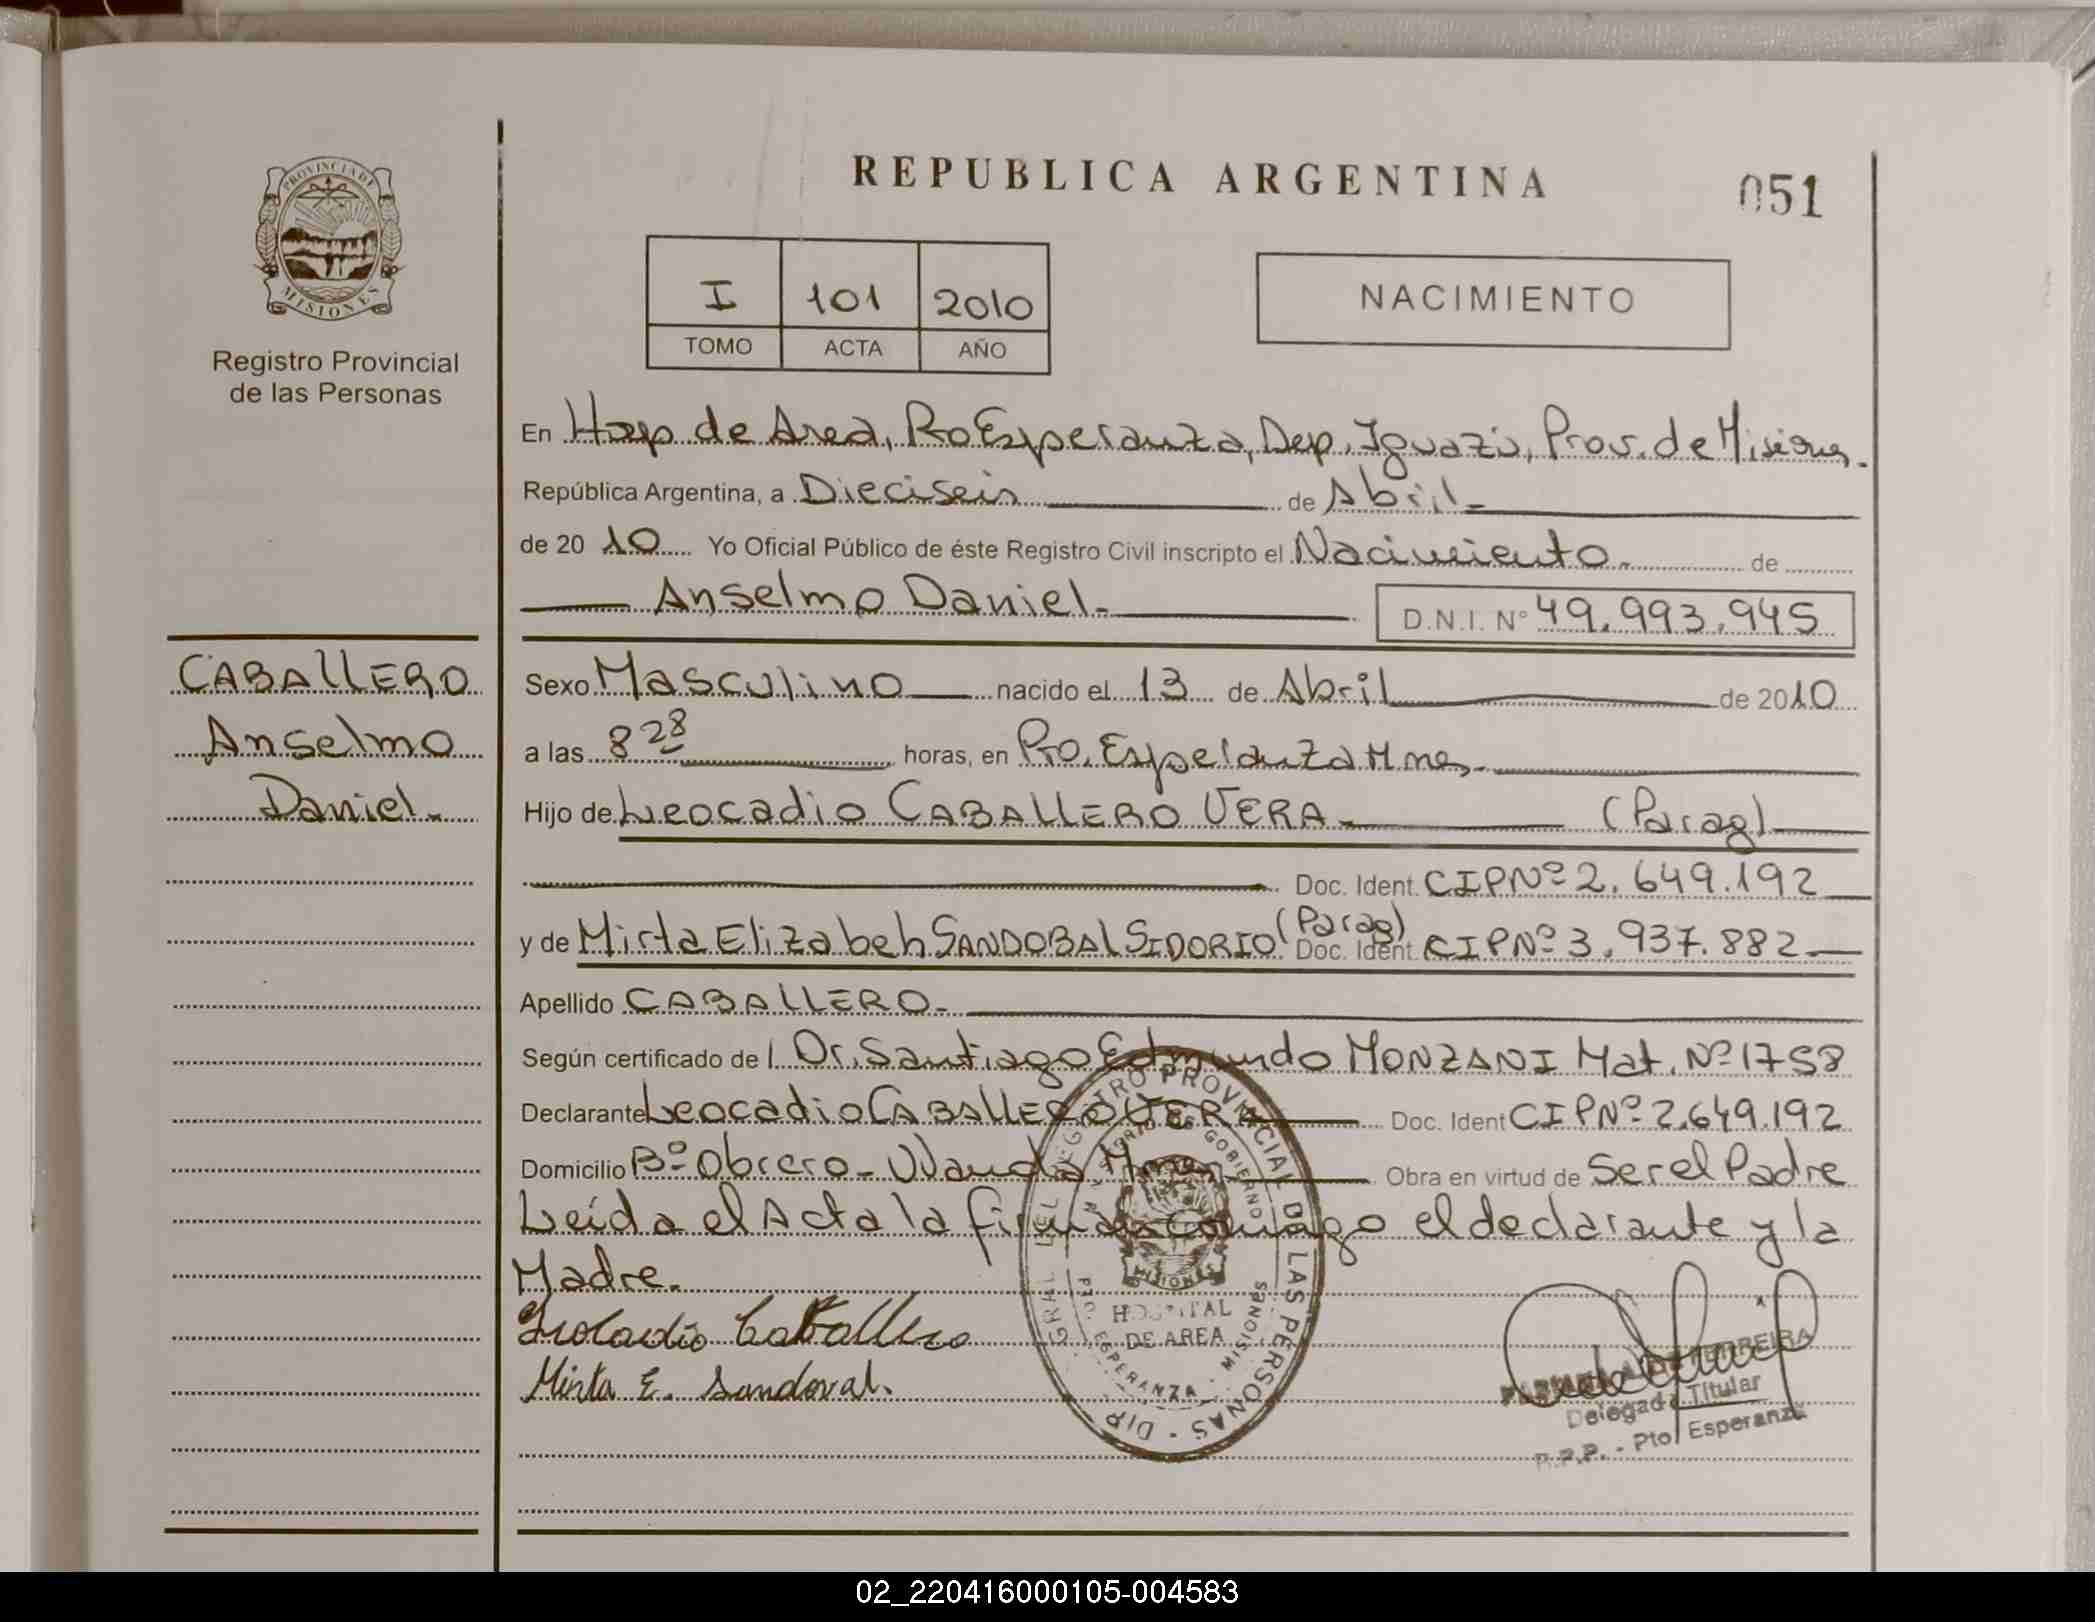 REPUBLICA ARGENTINA
051
PROVINCIA DE
MISIONES
Registro Provincial
de las Personas
I 101 2010
TOMO ACTA AÑO
NACIMIENTO
En Hosp de Area, Pto Esperanza, Dep. Iguazú, Prov. de Misiones.
República Argentina, a Dieciseis de Abril
de 20 10 Yo Oficial Público de éste Registro Civil inscripto el Nacimiento. de
Anselmo Daniel. D.N.I. Nº 49.993.945
CABALLERO
Anselmo
Daniel.
Sexo Masculino nacido el 13 de Abril de 2010
a las 8 28 horas, en Pto. Esperanza Mnes.
Hijo de Leocadio CABALLERO VERA (Parag)
Doc. Ident. CIPNº 2.649.192
y de Mirta Elizabeh SANDOBAL SIDORIO (Parag) Doc. Ident. CIPNº 3.937.882
Apellido CABALLERO.
Según certificado de l Dr. Santiago Edmundo MONZANI Mat. Nº 1758
Declarante Leocadio CABALLERO VERA Doc. Ident CIPNº 2.649.192
Domicilio Bº Obrero - Wanda Mnes Obra en virtud de Ser el Padre
Leída el Acta la firman conmigo el declarante y la
Madre.
Leolacdio Caballero
Mirta E. Sandoval.
REGISTRO PROVINCIAL DE LAS PERSONAS - DIR
GOBIERNO
MISIONES
HOSPITAL
DE AREA
ESPERANZA - MISIONES
FERREIRA
Delegada Titular
R.P.P. - Pto Esperanza
02_220416000105-004583